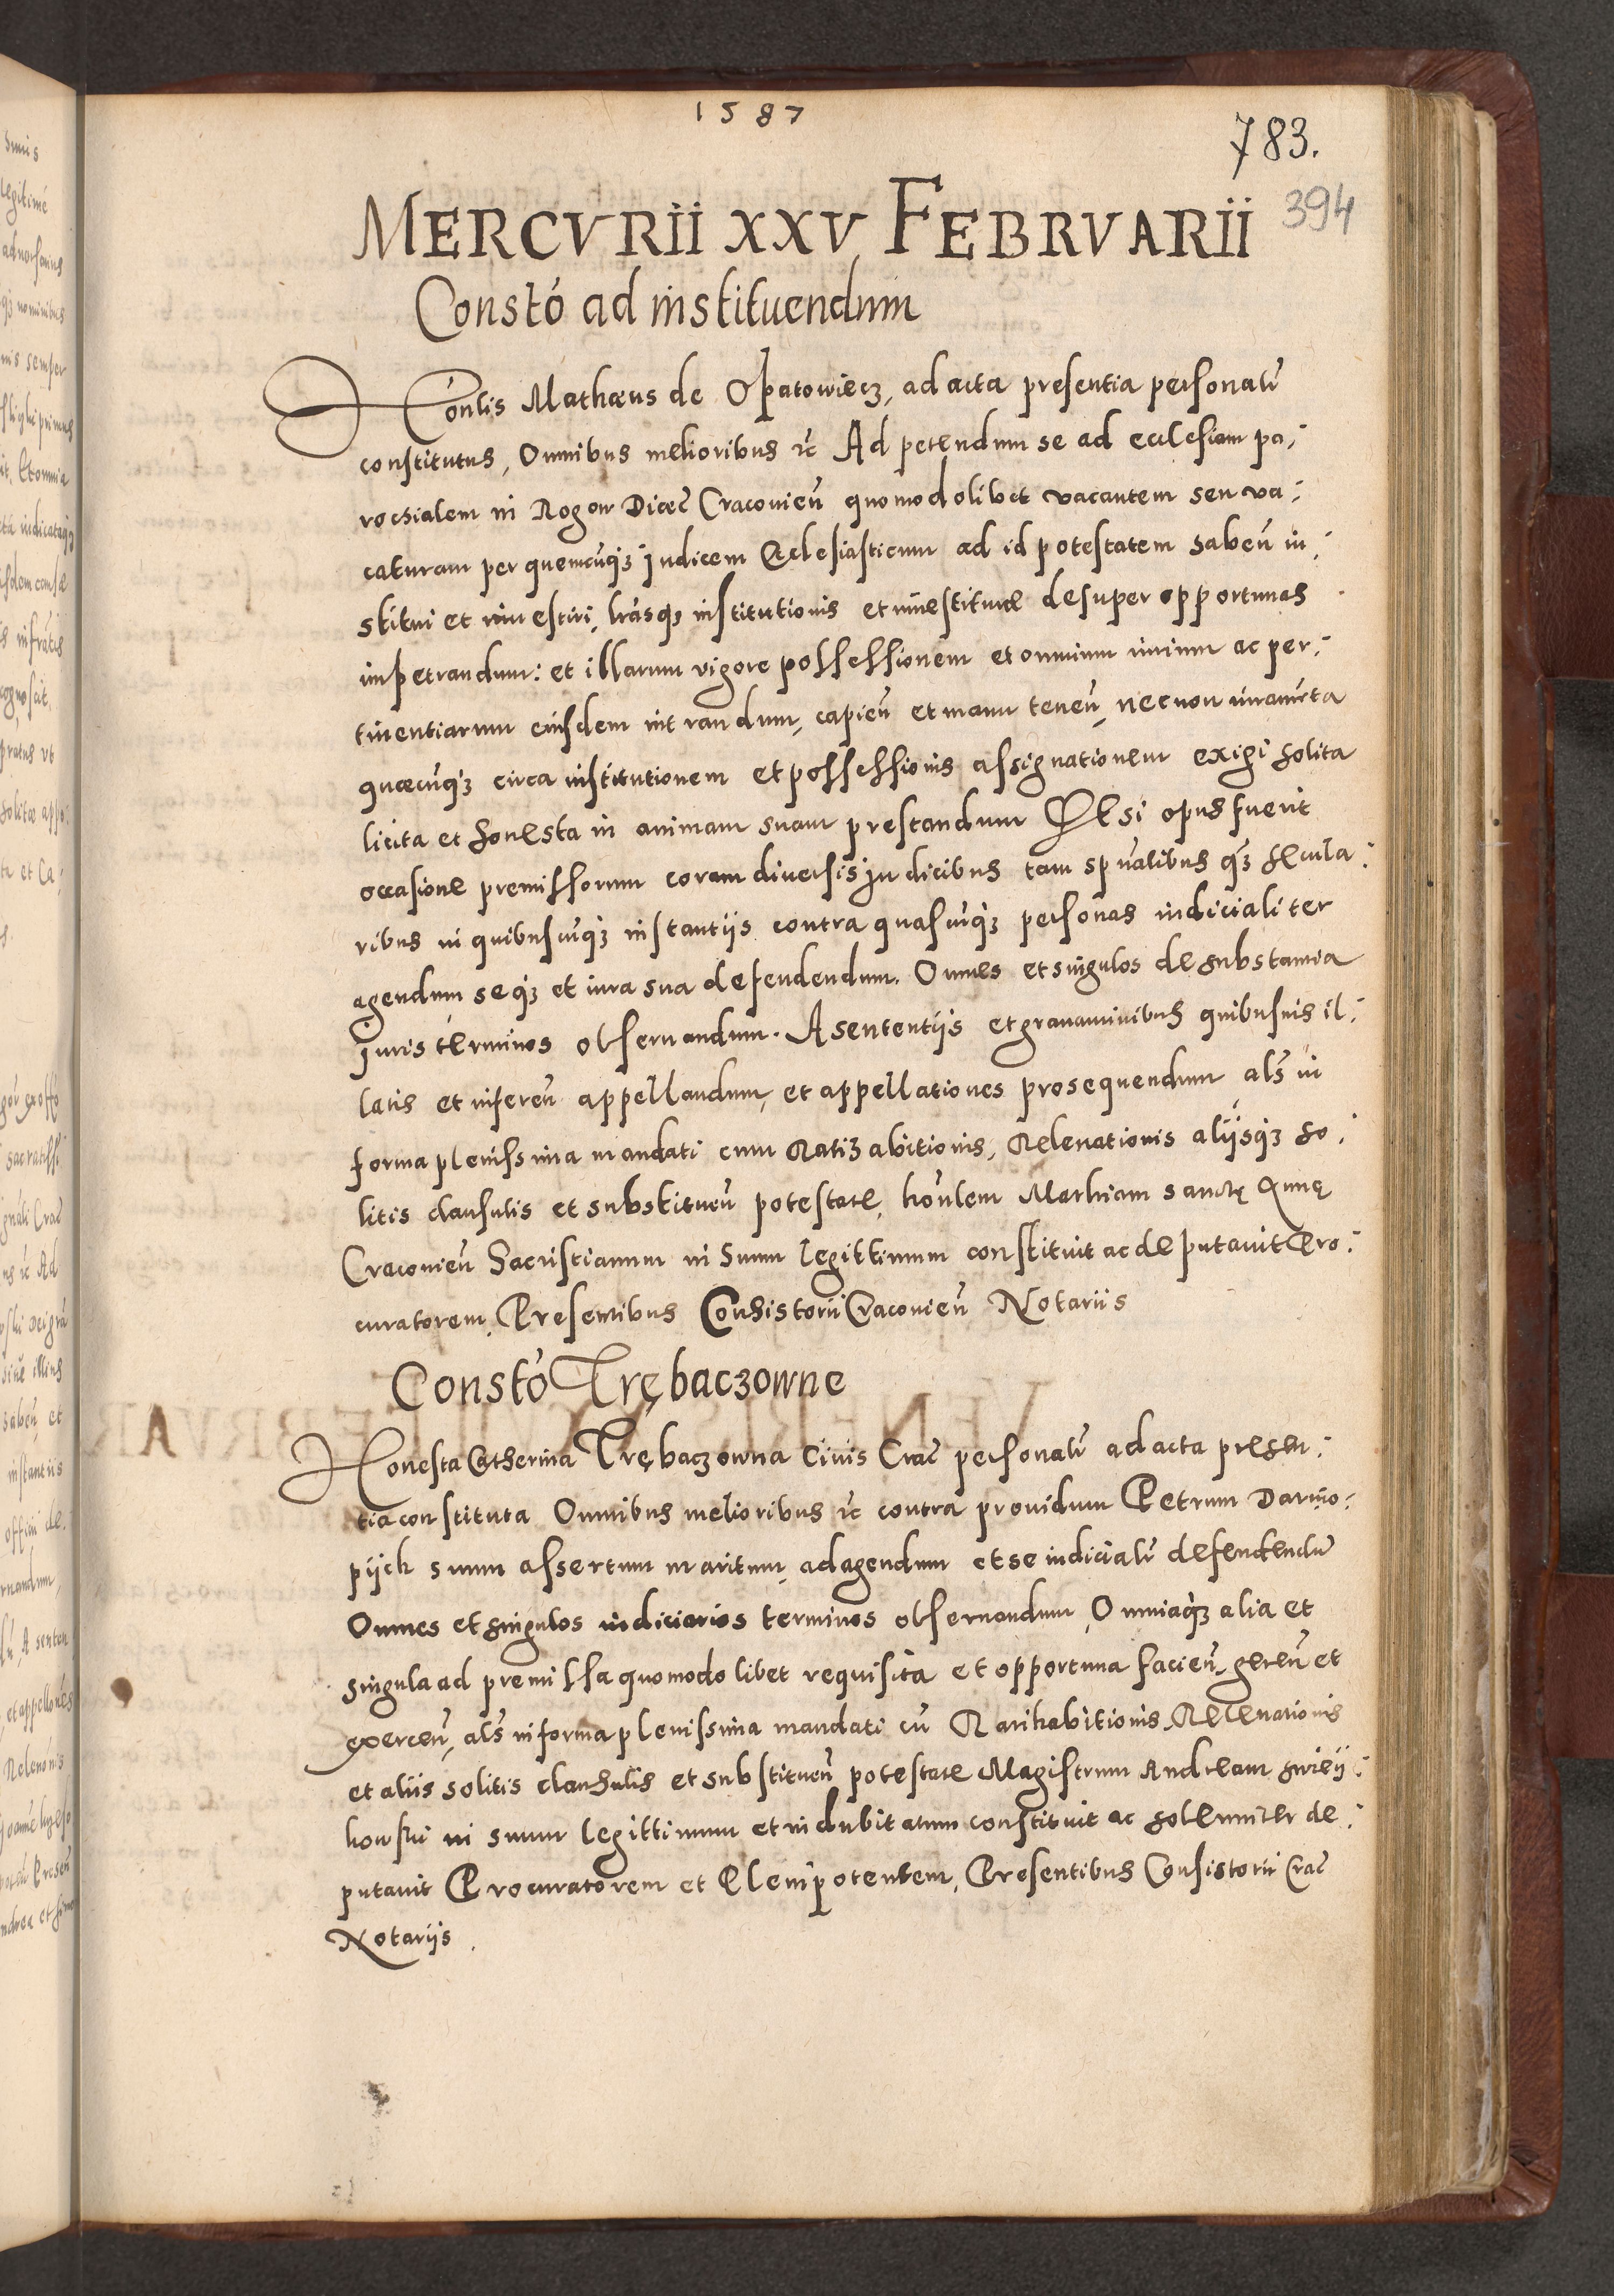 1587
783.
394
MERCVRII XXV FEBRVARII
Constō ad instituendum
Hōnlis Mathæus de Opatowiecz, ad acta presentia personalr̃
constitutus, Omnibus melioribus ꝛc Ad petendum se ad ecclesiam pa:
rochialem in Rogow Diœc̃ Cracovieñ quomodolibet vacantem seu va:
caturam per quemcūqꝫ Judicem Ecclesiasticum ad id potestatem habeñ in:
stitui et inuestiri, lrāsqꝫ institutionis et inuestituræ desuper opportunas
impetrandum: et illarum vigore possessionem et omnium iurium ac per:
tinentiarum eiusdem intrandum, capieñ et manu teneñ, necnon iuramēta
quæcūqꝫ circa institutionem et possessionis assignationem exigi solita
licita et honesta in animam suam prestandum Et si opus fuerit
occasione premissorum coram diuersis Judicibus tam spūalibus qꝫ̃ secula:
ribus in quibuscūqꝫ instantijs contra quascūqꝫ personas iudicialiter
agendum seqꝫ et iura sua defendendum. Omnes et singulos de substantia
Juris terminos obseruandum. A sententijs et grauaminibus quibusuis il:
latis et infereñ appellandum, et appellationes prosequendum als̃ in
forma plenissima mandati cum Ratihabitionis, Releuationis alijsqꝫ so:
litis clausulis et substitueñ potestate, hōnlem Mathiam sanctę Annę
Cracouieñ Sacristianum in Suum legittimum constituit ac deputauit Pro:
curatorem, Presentibus Consistorii Cracouieñ Notariis
Constō Trębaczowne
Honesta Catherina Trębaczowna Ciuis Crac̃ personalr̃ ad acta presen:
tia constituta Omnibus melioribus ꝛc contra prouidum Petrum Darmo:
pijch suum assertum maritum, ad agendum et se iudicialr̃ defendendū
Omnes et singulos iudiciarios terminos obseruandum, Omniaqꝫ alia et
singula ad premissa quomodolibet requisita et opportuna facieñ, gereñ et
exerceñ, als̃ in forma plenissima mandati cū Ratihabitionis, Releuationis
et aliis solitis clausulis et substitueñ potestate Magistrum Andream
howski in suum legittimum et indubitatum constituit ac solemniter de:
putauit Procuratorem et Plenipotentem, Presentibus Consistorii Crac̃
Notarijs.